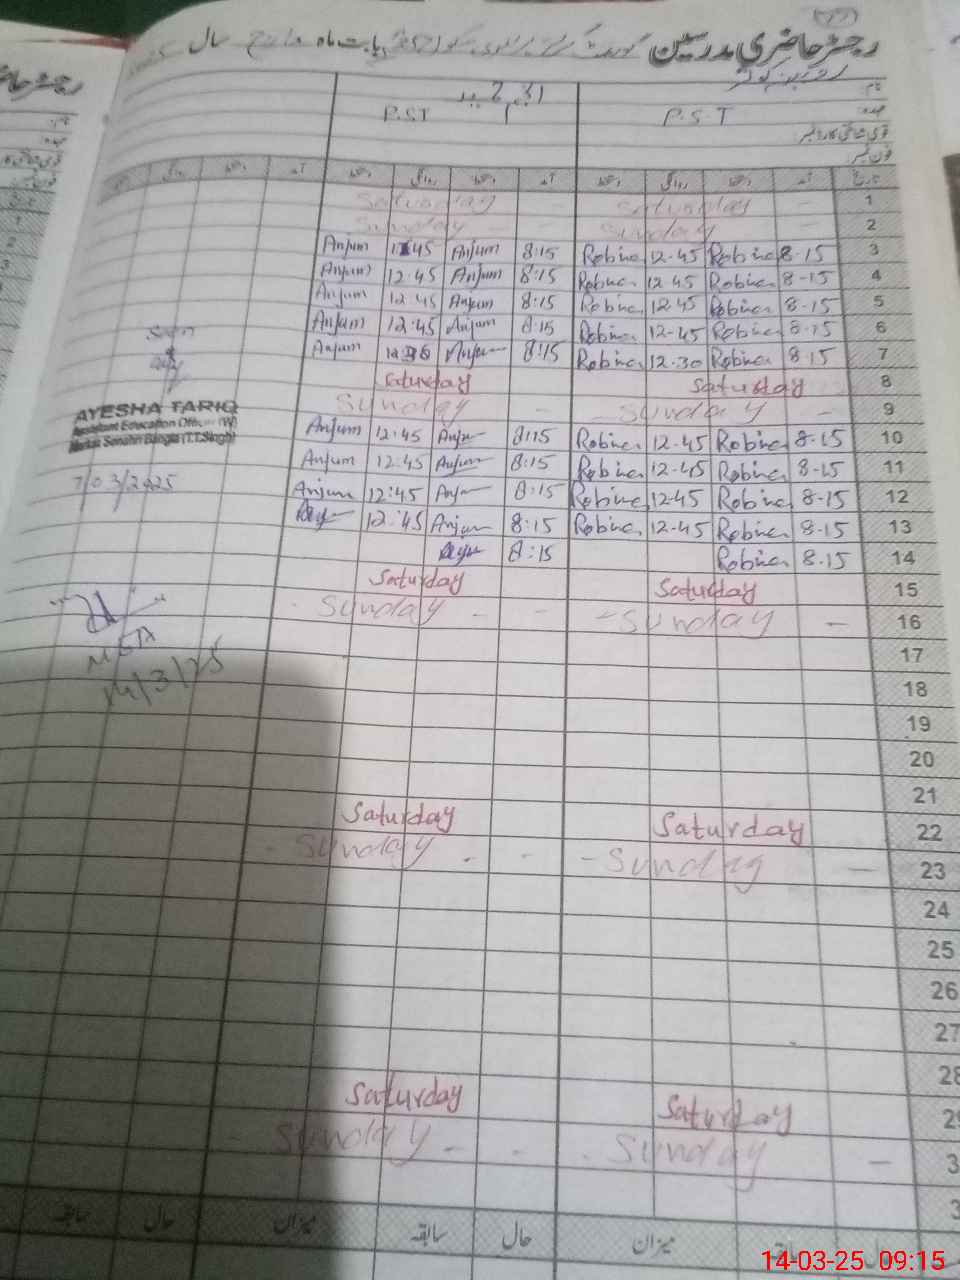 رجسٹر حاضری مدرسین گورنمنٹ بابت ماہ مارچ سال
نام
عہدہ P.S.T P.ST
قومی شناختی کارڈ نمبر
فون نمبر
تاریخ آمد دستخط روانگی دستخط آمد دستخط روانگی دستخط آمد دستخط روانگی
Saturday - Saturday - 1
Sunday - - Sunday - 2
Anjum 45 Anjum 8:15 Robina 12-45 Robina 8-15 3
Anjum 12:45 Anjum 8:15 Robina 12-45 Robina 8-15 4
Anjum 12:45 Anjum 8:15 Robina 12-45 Robina 8-15 5
Anjum 12:45 Anjum 8:15 Robina 12-45 Robina 8-15 6
Anjum Anjum 8:15 Robina 12-30 Robina 8-15 7
Saturday Saturday 8
Sunday - Sunday - 9
Anjum 12:45 Anjum 8:15 Robina 12-45 Robina 8-15 10
Anjum 12:45 Anjum 8:15 Robina 12-45 Robina 8-15 11
Anjum 12:45 Anjum 8:15 Robina 12-45 Robina 8-15 12
12:45 Anjum 8:15 Robina 12-45 Robina 8-15 13
8:15 Robina 8-15 14
Saturday Saturday 15
Sunday - - - Sunday - 16
17
18
19
20
21
Saturday Saturday 22
- Sunday - - - Sunday - 23
24
25
26
27
28
Saturday Saturday
- Sunday - - Sunday -
سابقہ حال میزان سابقہ حال میزان
AYESHA TARIQ
Assistant Education Officer (W)
Markaz Sonehri Bangla (T.T.Singh)
7/03/2025
14/3/25
14-03-25 09:15